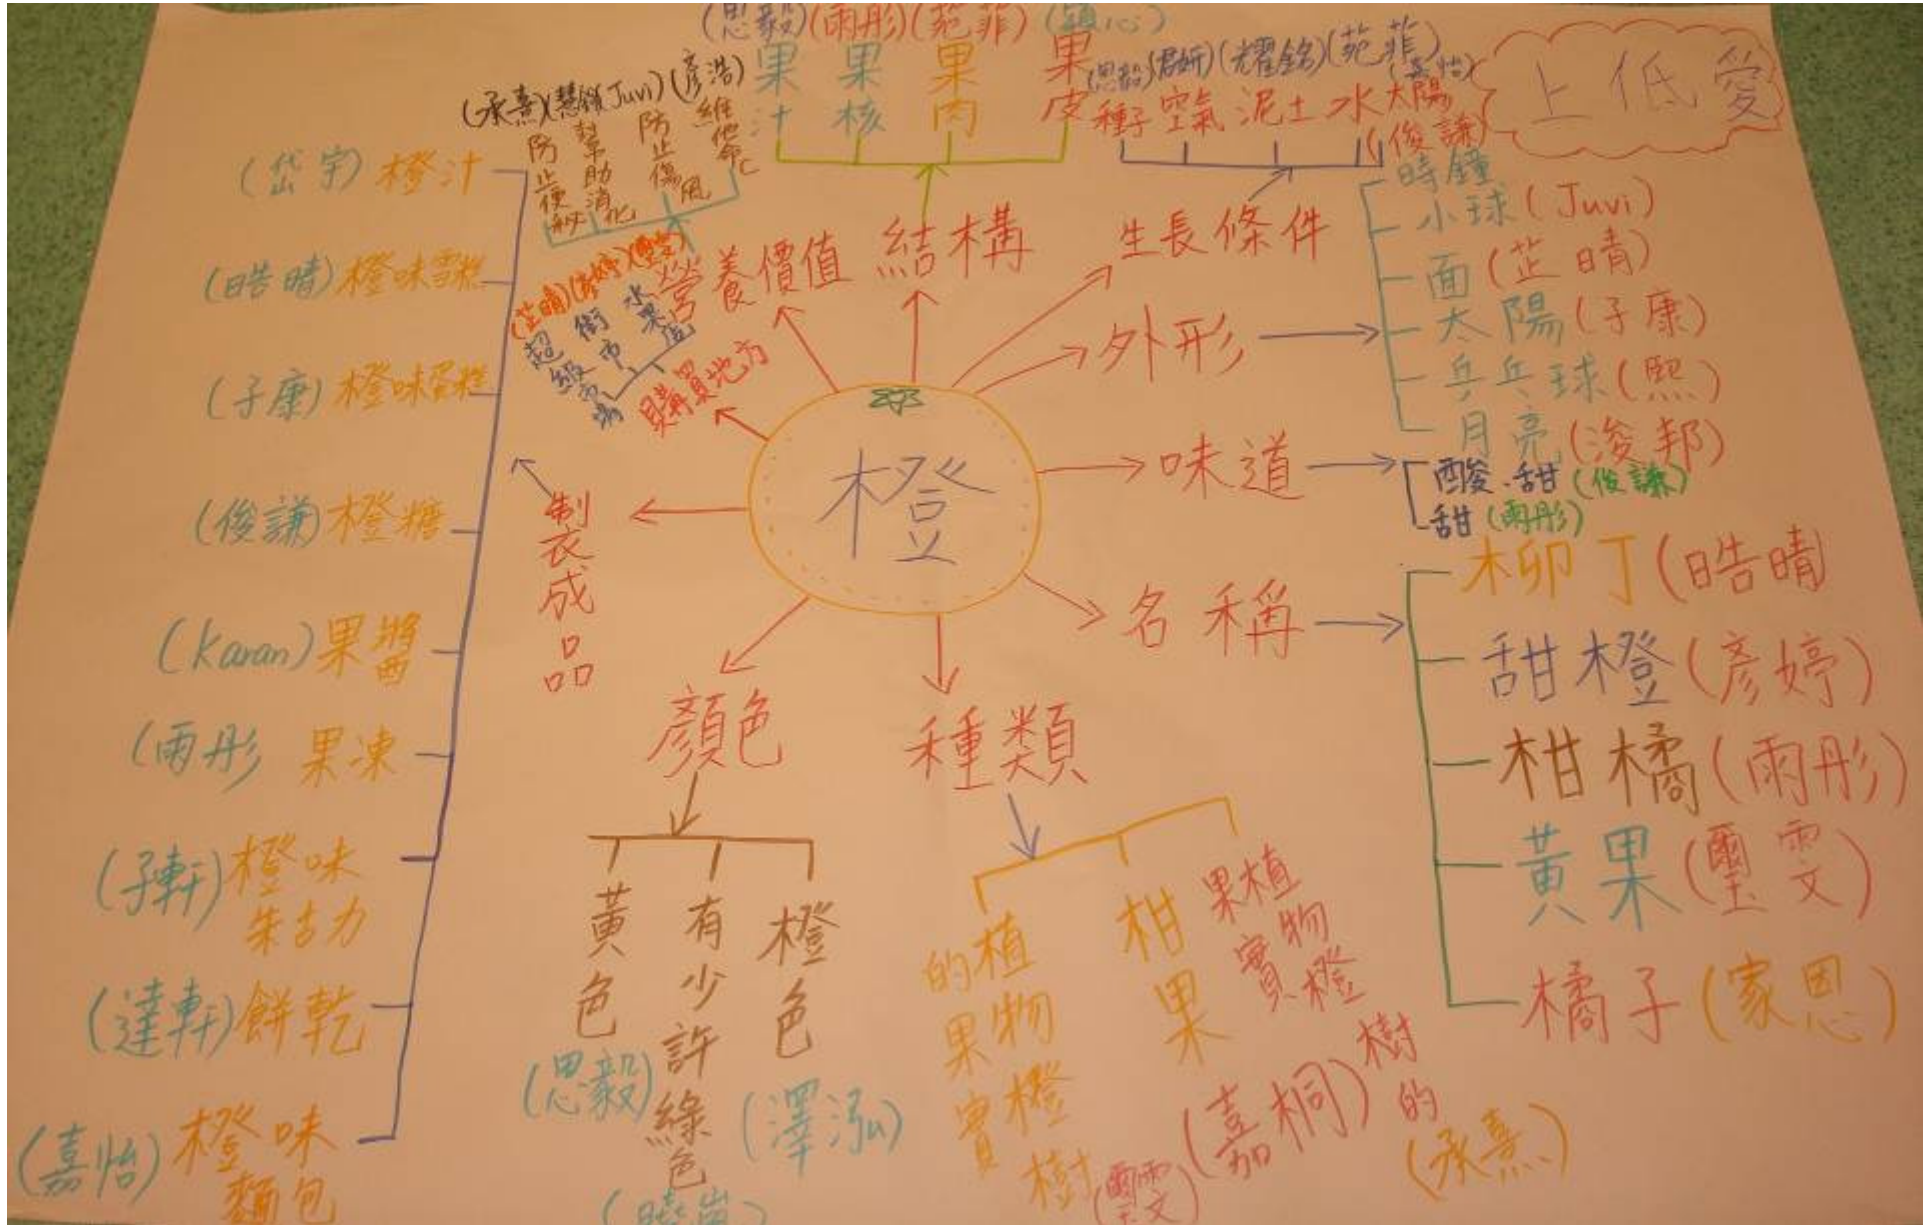 上低愛
橙
(思毅)(雨彤)(菀菲)(穎心)
果汁
果核
果肉
果皮
結構
(承熹)(慧鎖)(Juvi)(彥浩)
防止便秘
幫助消化
防止傷風
維他命C
營養價值
(芷晴)(彥婷)
超級市場
街市
水果店
購買地方
(思毅)(君妍)(耀銘)(菀菲)
(嘉怡)
種子 空氣 泥土 水 太陽
(俊謙)
生長條件
外形
時鐘
小球(Juvi)
面(芷晴)
太陽(子康)
乒乓球(熙)
月亮(浚邦)
味道
酸、甜(俊謙)
甜(雨彤)
名稱
柳丁(晧晴
甜橙(彥婷)
柑橘(雨彤)
黃果(璽雯)
橘子(家恩)
種類
植物橙樹
的果實
(璽雯)
柑果
(嘉桐)
植物橙樹的
果實
(承熹)
顏色
黃色
(思毅)
有少許綠色
橙色
(澤泓)
制衣成品
(岱宇)橙汁
(晧晴)橙味雪糕
(子康)橙味蛋糕
(俊謙)橙糖
(Karan)果醬
(雨彤 果凍
(子軒)橙味
朱古力
(達軒)餅乾
(嘉怡)橙味
麵包